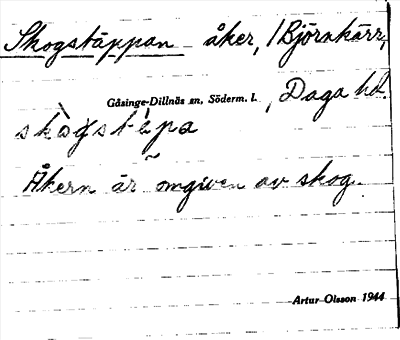 Skogstäppan åker, Björnkärr,
Gåsinge-Dillnäs sn, Söderm. l. , Daga hd.
skògstę̀pa
Åkern är omgiven av skog.
Artur Olsson 1944